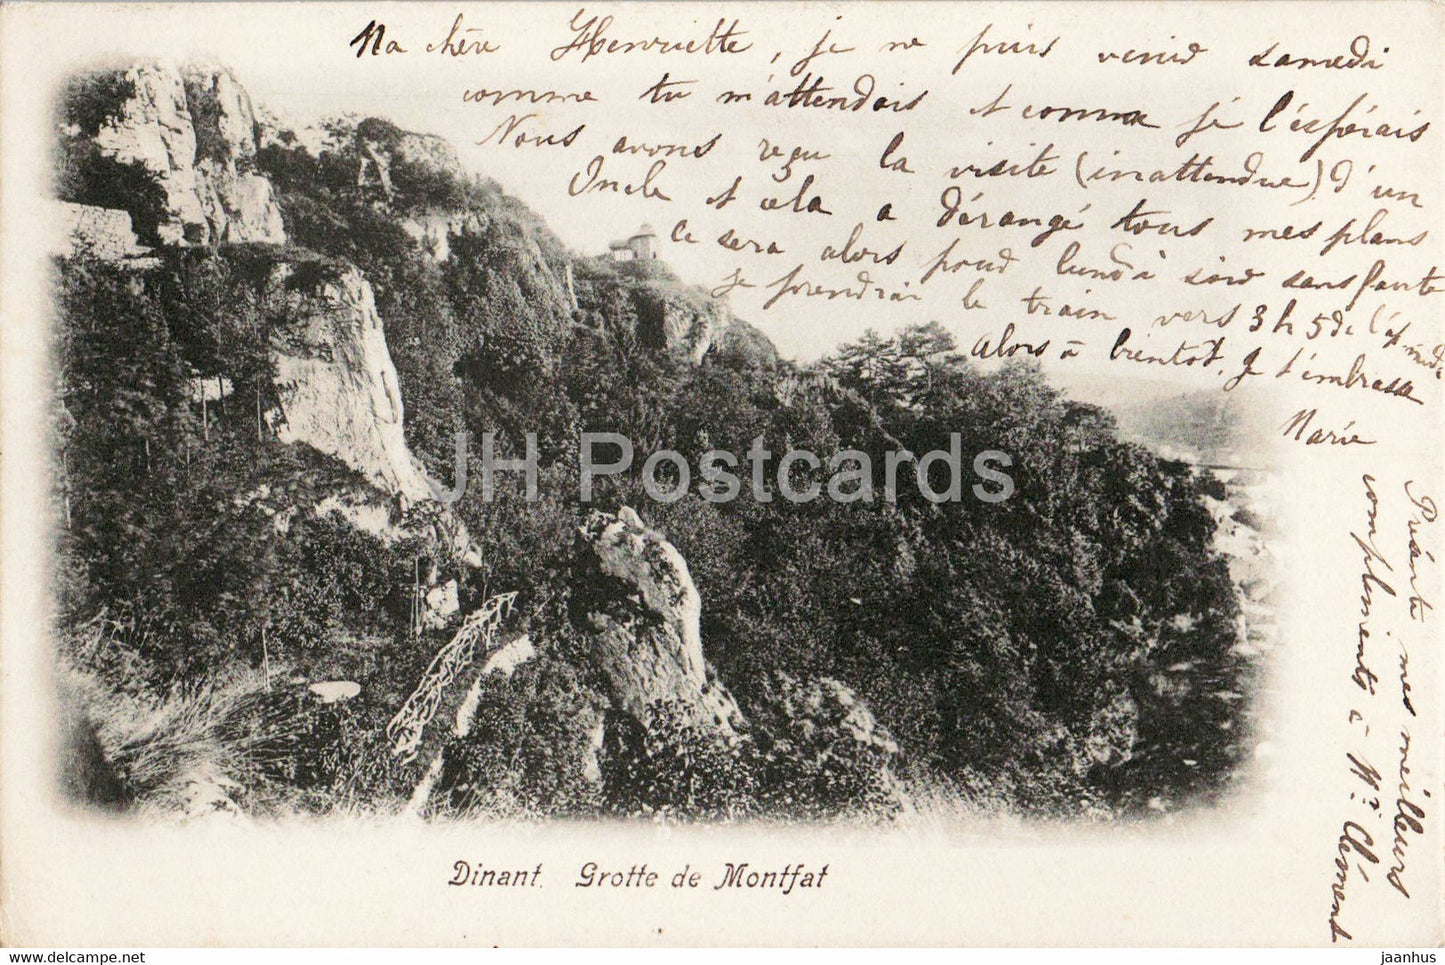 Ma chère Henriette, je ne puis venir samedi
comme tu m'attendais et comme je l'éspérais
Nous avons reçu la visite (inattendue) d'un
Oncle et cela a dérangé tous mes plans
ce sera alors pour lundi soir sans faute
je prendrai le train vers 3 h 5 de l'ap midi
alors à bientôt. Je t'embrasse
Marie
Présente mes meilleurs
compliments à Mr Clément
JH Postcards
Dinant. Grotte de Montfat
www.delcampe.net
jaanhus